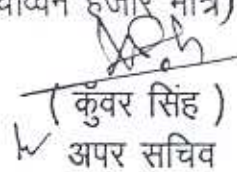 हजार मात्र)
( कुँवर सिंह )
अपर सचिव